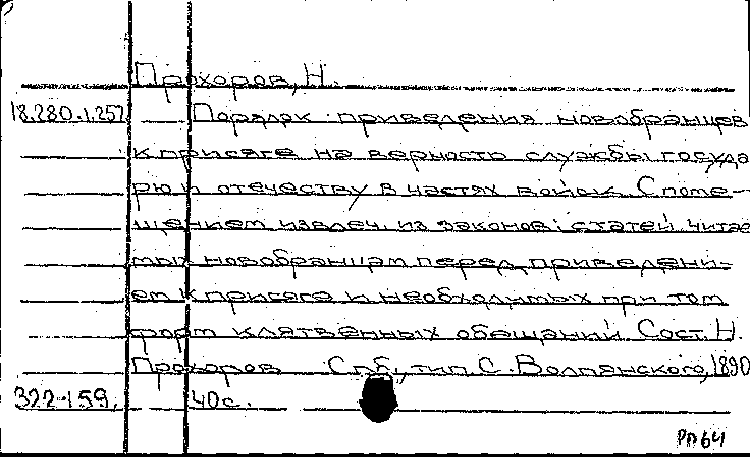 Прохоров, Н.
18.280.1.257 Порядок приведения новобранцев
к присяге на верность службы госуда
рю и отечеству в частях войск. С поме-
щением извлеч. из законов: статей, читае
мых новобранцам перед приведени-
ем к присяге и необходимых при том
форм клятвенных обещаний. Сост. Н.
Прохоров Спб., тип. С. Волпянского, 1890
322-159. 40 с.
РП 64